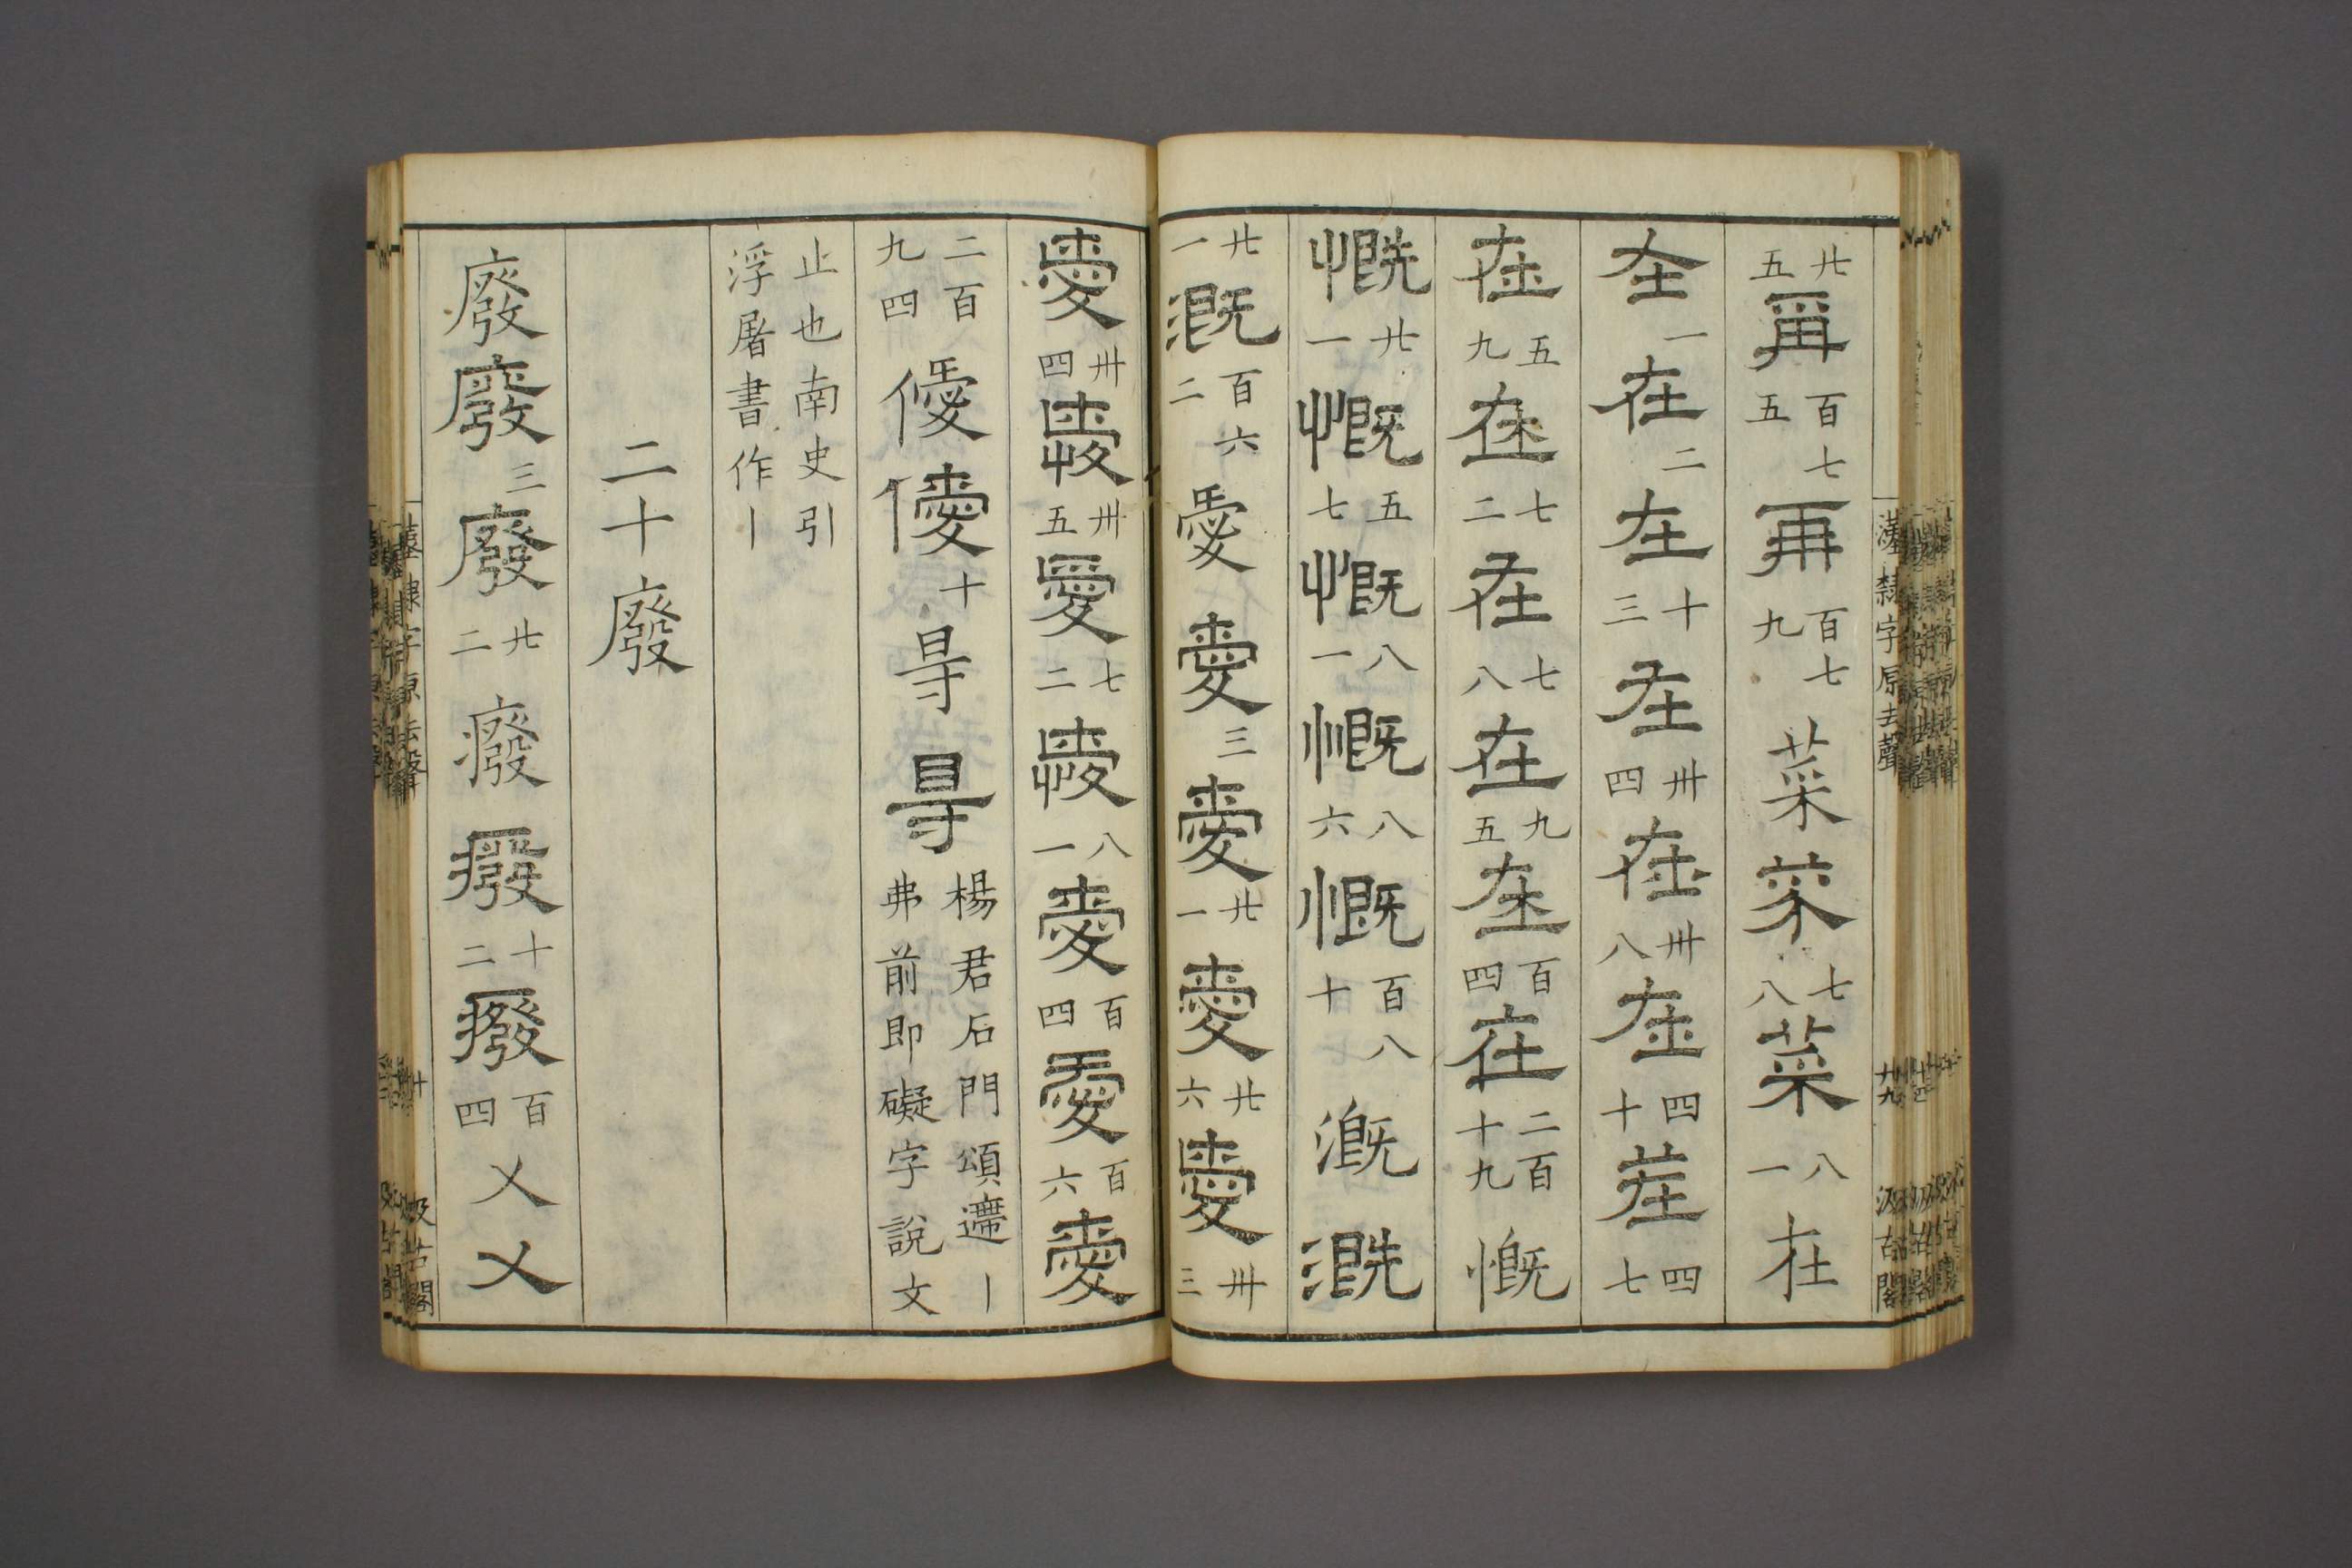 漢隸字原去聲 廿九 汲古閣
廿五再百七五再百七九菜菜七八菜八一在
在一在二在十三在卅四在卅八在四十在四七
在五九在七二在七八在九五在百四在二百十九慨
慨廿一慨五七慨八一慨八六慨百八十溉溉
廿一溉百六二愛愛三愛廿一愛廿六愛卅三
愛卅四愛卅五愛七二愛八一愛百四愛百六愛
二百九四僾僾十㝵㝵楊君石門頌遰丨弗前即礙字說文
止也南史引浮屠書作丨
二十廢
廢廢三廢廿二癈癈十二癈百四乂乂